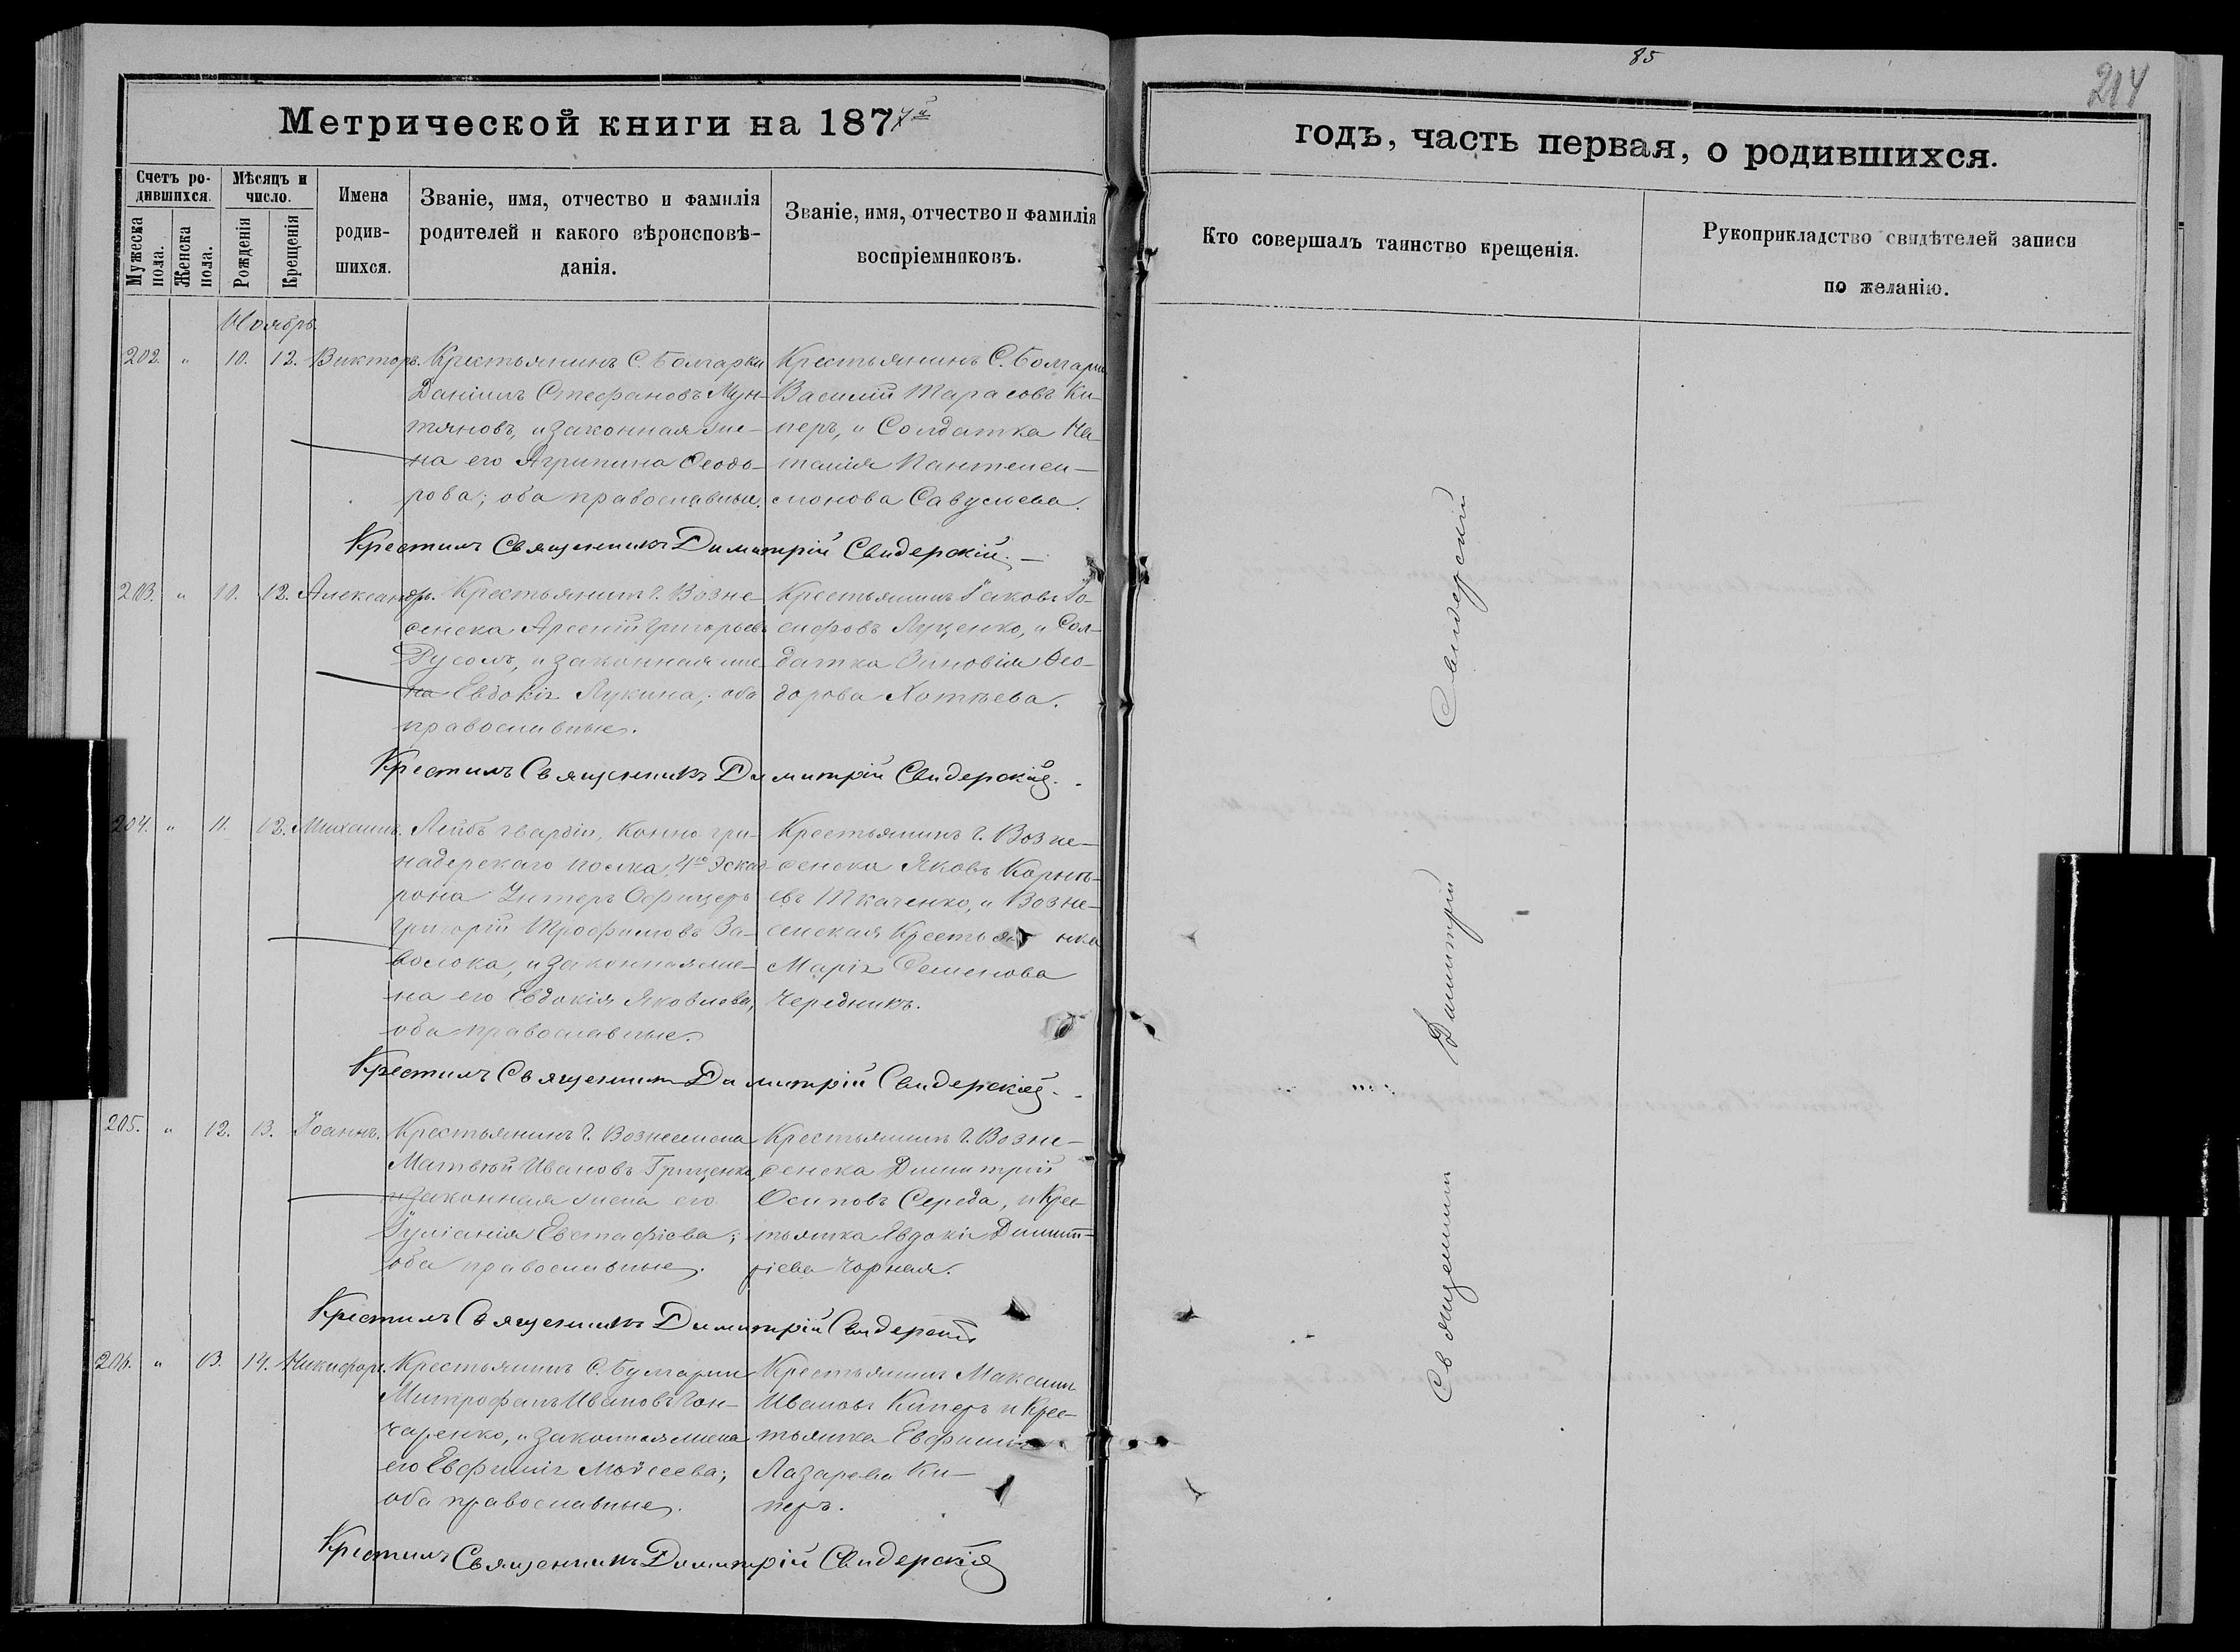 85
214
Метрической книги на 1877й
годъ, часть первая, о родившихся.
Счетъ ро-
дившихся.
Мужеска
пола.
Женска
пола.
Мѣсяцъ и
число.
Рожденія
Крещенія
Имена
родив-
шихся.
Званіе, имя, отчество и фамилія
родителей и какого вѣроисповѣ-
данія.
Званіе, имя, отчество и фамилія
воспріемниковъ.
Кто совершалъ таинство крещенія.
Рукоприкладство свидѣтелей записи
по желанію.
Ноябрь.
202. " 10. 12. Викторъ.
Крестьянинъ С. Болгарки
Даніилъ Стефановъ Мун-
тяновъ, и законная же-
на его Агрипина Ѳеодо-
рова; оба православные.
Крестьянинъ С. Болгарки
Василій Тарасовъ Ки-
перъ, и Солдатка На-
талія Пантелеи-
монова Савульева.
Крестилъ Священникъ Димитрій Свидерскій.
203. " 10. 12. Александръ.
Крестьянинъ г. Возне-
сенска Арсеній Григорьевъ
Русолъ, и законная же-
на Евдокія Лукина; оба
православные.
Крестьянинъ Іаковъ Іо-
сифовъ Луценко, и Сол-
датка Зиновія Ѳео-
дорова Хотѣева.
Крестилъ Священникъ Димитрій Свидерскій.
204. " 11. 12. Михаилъ.
Лейбъ гвардіи, Конно гри-
надерскаго полка, 4го Эскад-
рона Унтеръ Офицеръ
Григорій Трофимовъ За-
волока, и законная же-
на его Евдокія Яковлева,
оба православные.
Крестьянинъ г. Возне-
сенска Яковъ Корнѣ-
евъ Ткаченко, и Возне-
сенская Крестьянка
Марія Семенова
Чередникъ.
Крестилъ Священникъ Димитрій Свидерскій.
205. " 12. 13. Іоаннъ.
Крестьянинъ г. Вознесенска
Матвѣй Ивановъ Гриценко,
и законная жена его
Іуліанія Евстафіева;
оба православные.
Крестьянинъ г. Возне-
сенска Димитрій
Осиповъ Середа, и Крес-
тьянка Явдокія Димит-
ріева Чорная.
Крестилъ Священникъ Димитрій Свидерскій
206. " 13. 14. Никифоръ.
Крестьянинъ С. Булгарки
Митрофанъ Ивановъ Гон-
чаренко, и законная жена
его Евфимія Моисеева;
оба православные.
Крестьянинъ Максимъ
Ивановъ Киперъ и Крес-
тьянка Евфимія
Лазарева Ки-
перъ.
Крестилъ Священникъ Димитрій Свидерскій
Священникъ Димитрій Свидерскій